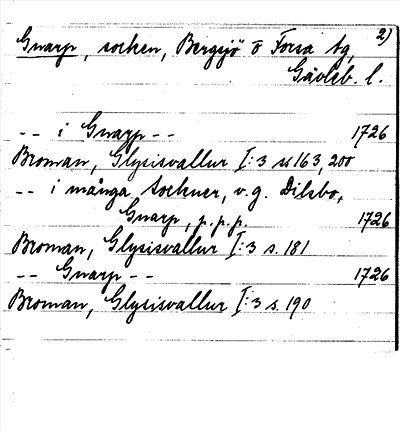 2)
Gnarp, socken, Bergsjö o Forsa tg,
Gävleb. l.
-- i Gnarp -- 1726
Broman, Glysisvallur I:3 ss 163, 200
-- i många Sockner, v.g. Dilsbo,
Gnarp, p.p.p. 1726
Broman, Glysisvallur I:3 s. 181
-- Gnarp -- 1726
Broman, Glysisvallur I:3 s. 190